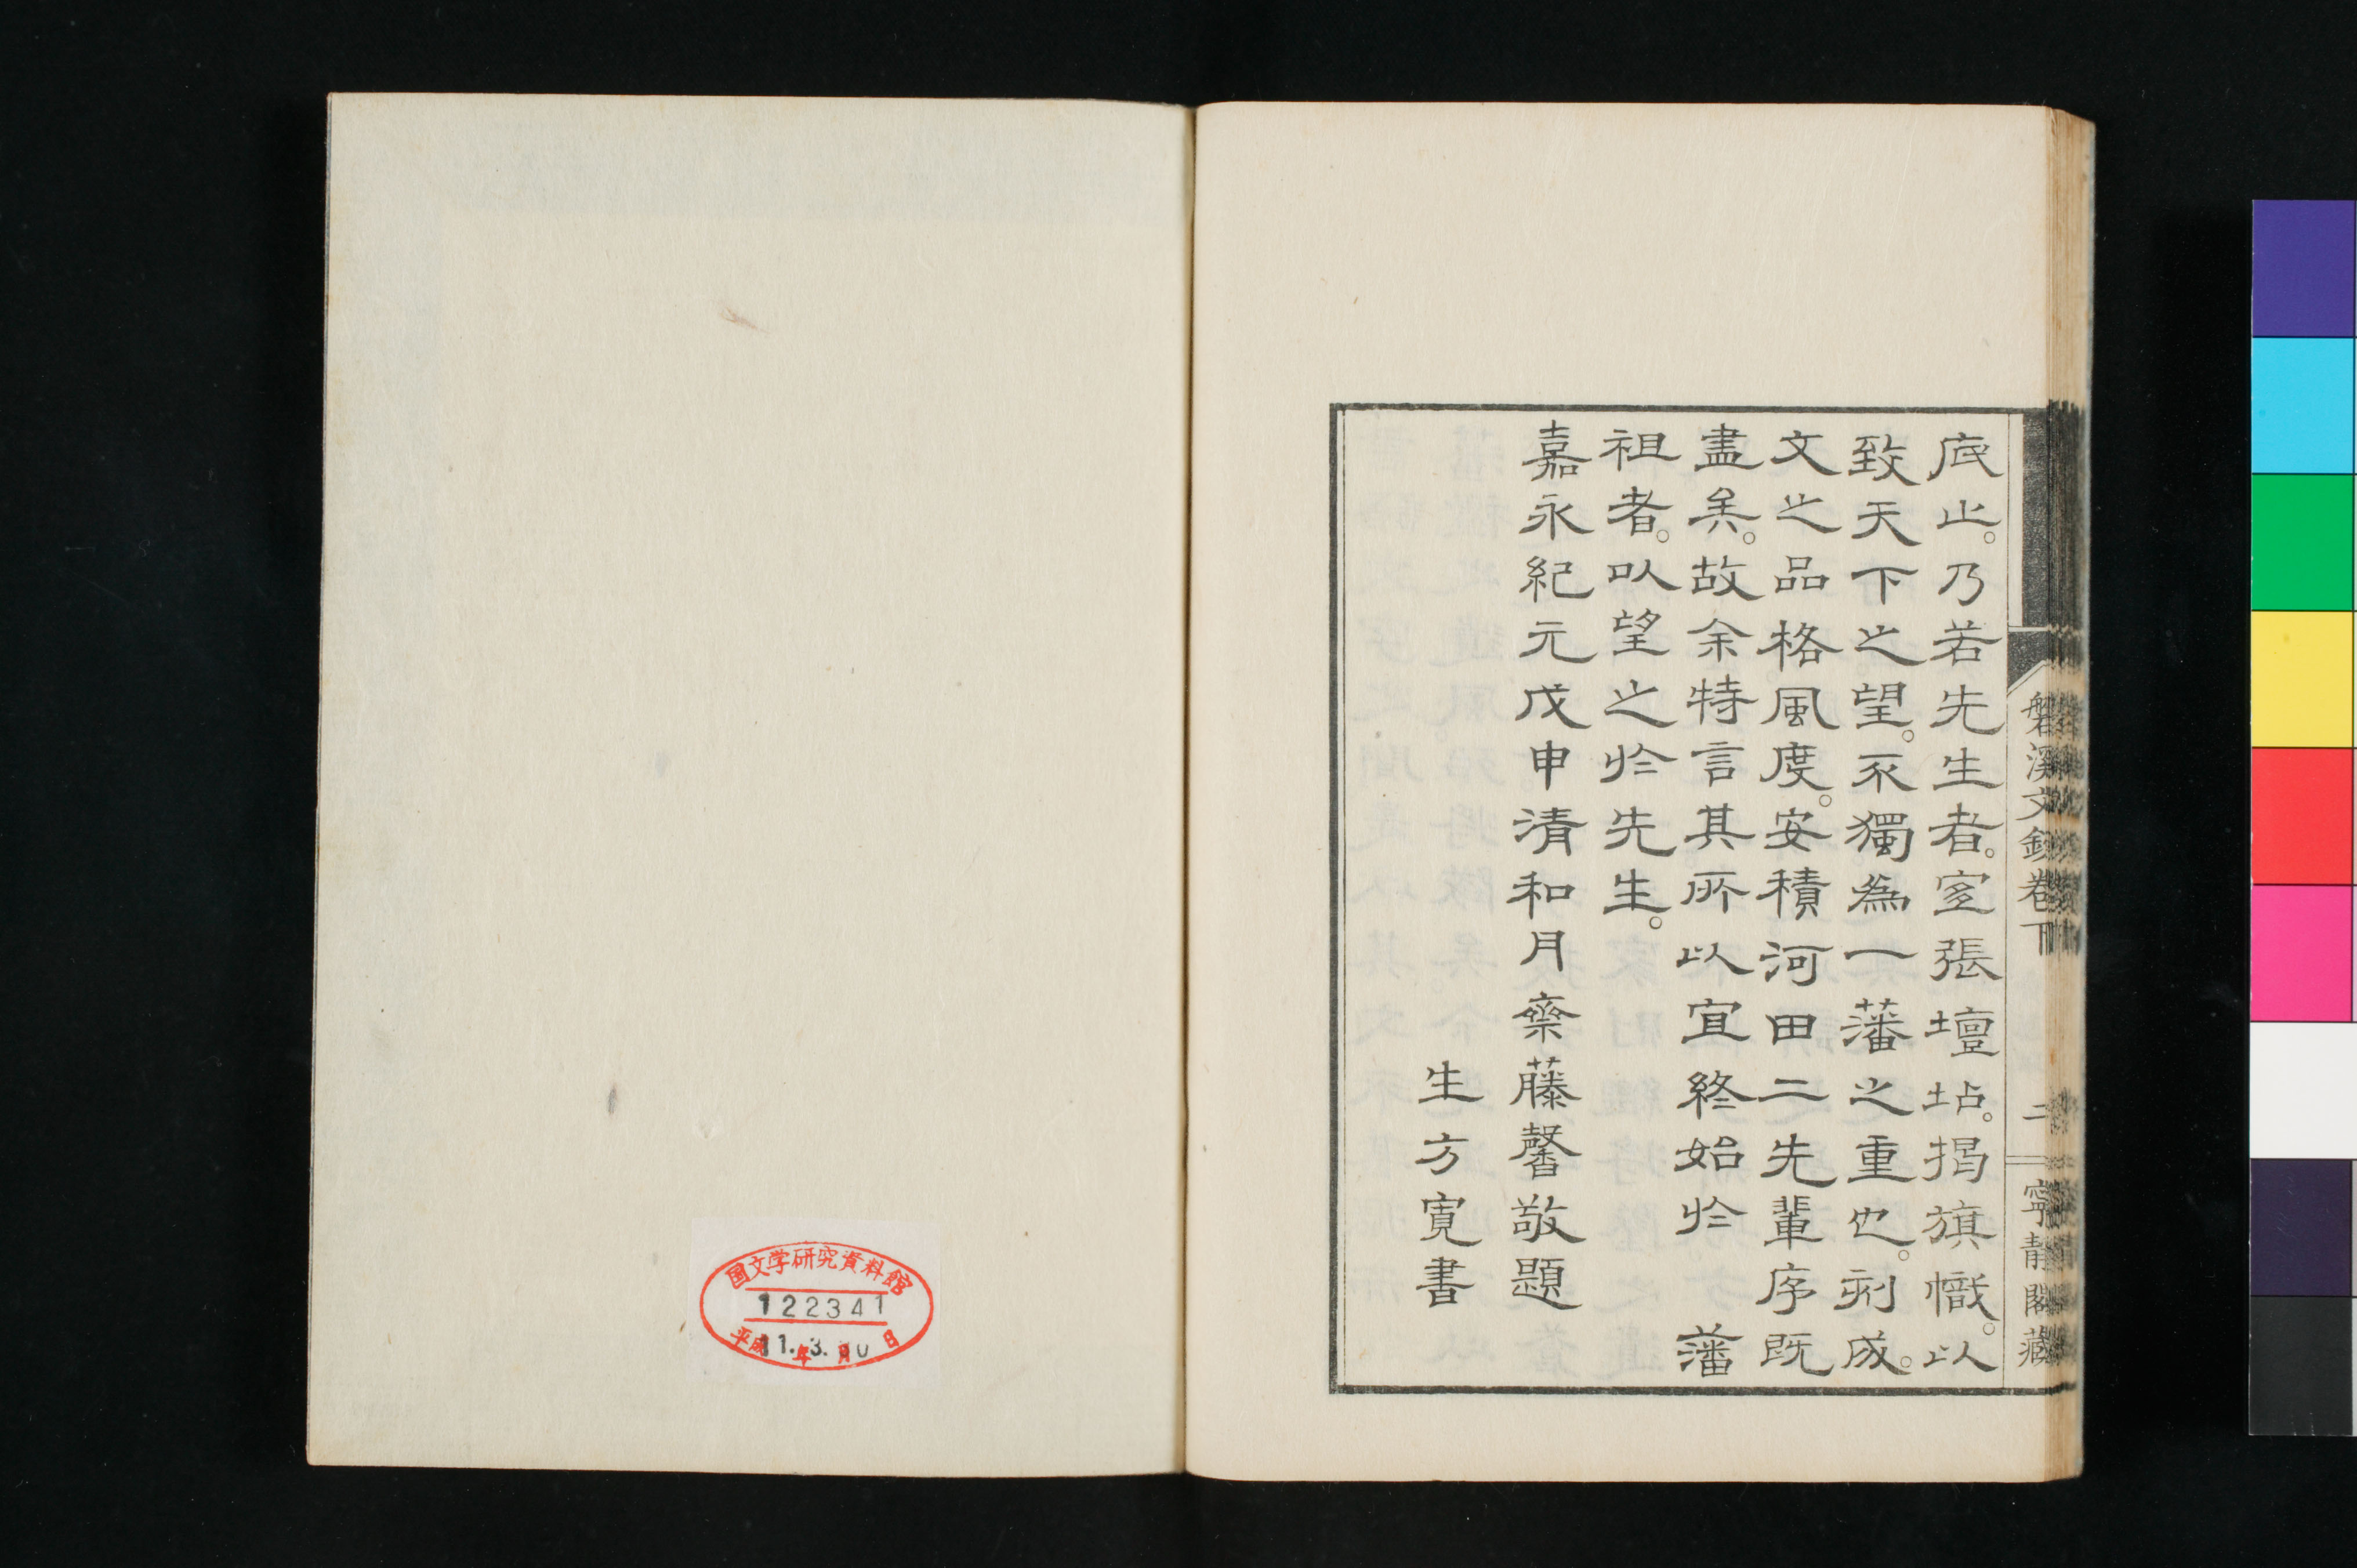 底止。乃若先生者。宜張壇坫。揭旗幟。以
致天下之望。不獨為一藩之重也。刻成。
文之品格風度。安積河田二先輩序既
盡矣。故余特言其所以宜終始於　藩
祖者。以望之於先生。
嘉永紀元戊申清和月齋藤馨敬題
生方寬書
磐溪文鈔卷下
二
寧靜閣藏
国文学研究資料館
122341
平成 11.3.30
年 月 日